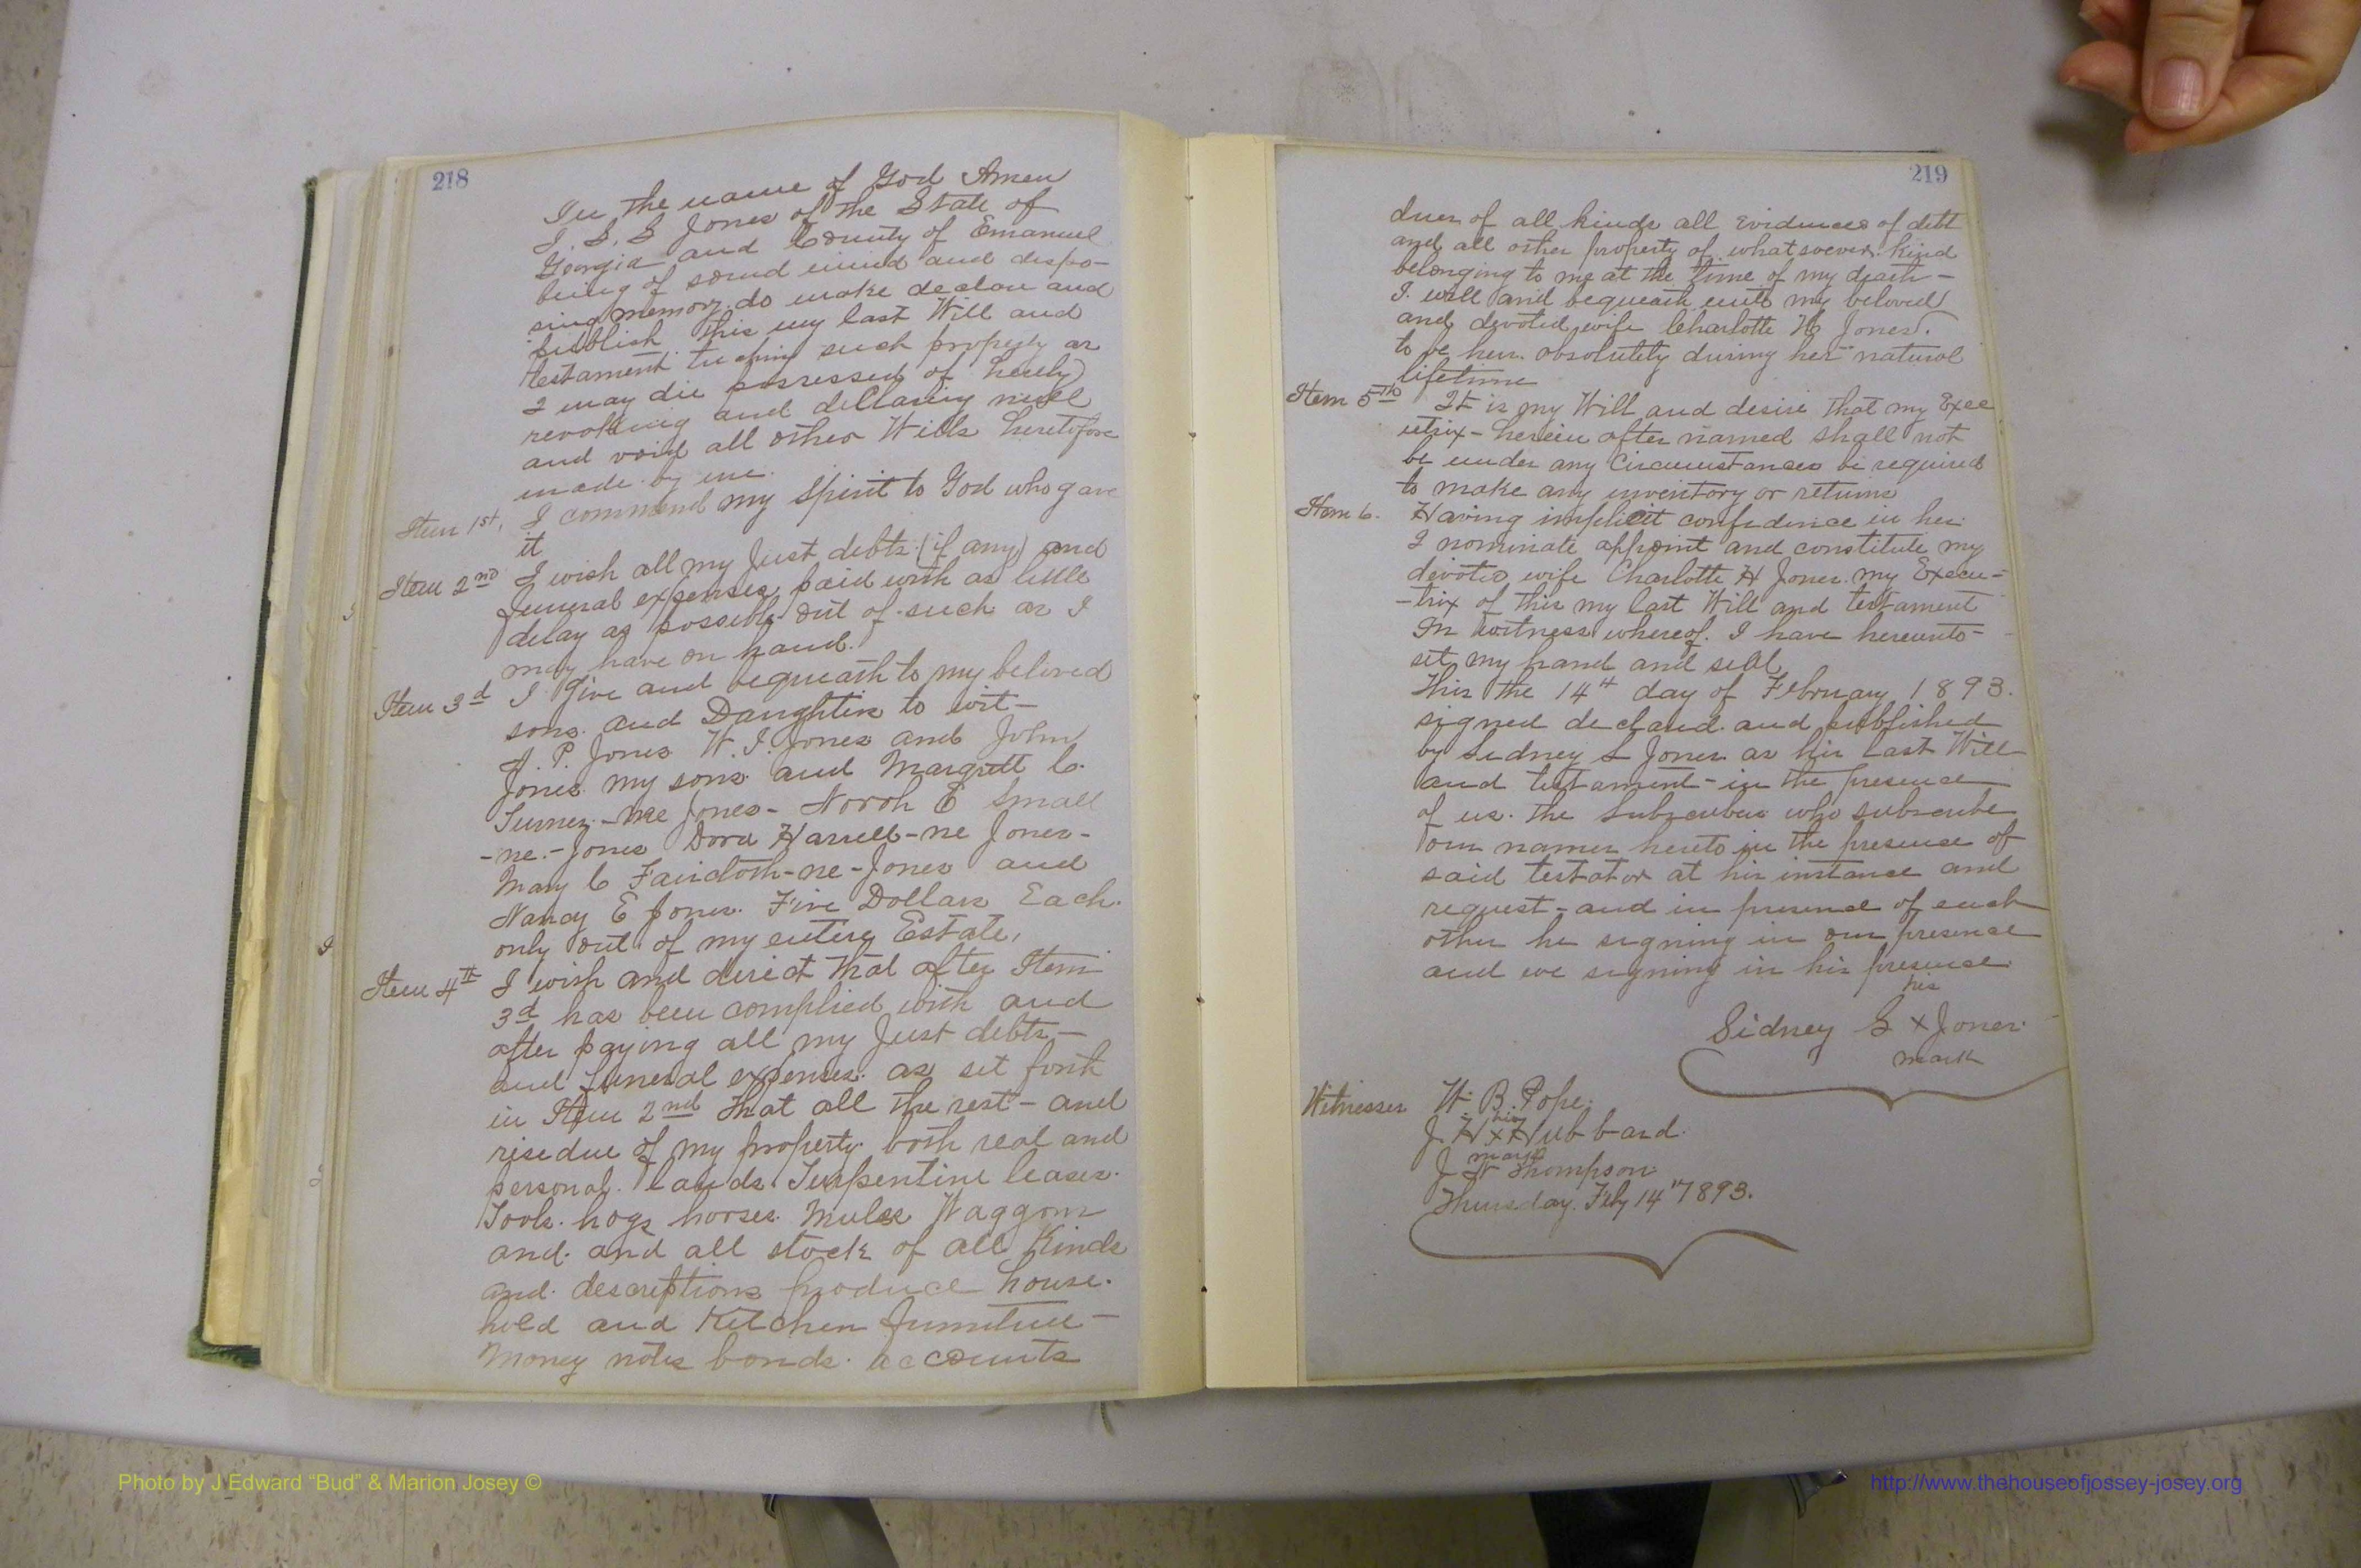 218
In the name of God Amen
I. S. S Jones of the State of
Georgia and County of Emanuel
being of sound mind and dispo-
sing memory do make declare and
publish this my last Will and
testament tuching such property as
I may die possessed of hereby
revoking and decllaring null
and void all other Wills heretofore
made by me.
Item 1st, I commend my Spirit to God who gave
it
Item 2nd I wish all my Just debts (if any) and
funeral expenses paid with as little
delay as possible out of such as I
may have on hand.
Item 3d I Give and bequeath to my beloved
sons and Daughters to wit-
A. P. Jones W. I. Jones and John
Jones my sons and Margrett C.
Sumner - nee Jones - Norah E Small
- ne - Jones Dora Harrell - ne Jones -
Mary C Faircloth - ne - Jones and
Nancy E Jones. Five Dollars Each.
only out of my entire Estate,
Item 4th I wish and direct that after Item
3d has been complied with and
after paying all my Just debts -
and funeral expenses as set forth
in Item 2nd that all the rest - and
risedue of my property both real and
personal. lands. Turpentine leases.
Tools. hogs horses. Mules Waggons
and. and all stock of all Kinds
and descriptions produce house.
hold and Kitchen furniture -
Money notes bonds. accounts
219
dues of all kinds all evidences of debt
and all other property of whatsoever kind
belonging to me at the time of my death -
I will and bequeath unto my beloved
and devoted wife Charlotte H Jones.
to be hers absolutely during her natural
lifetime
Item 5th It is my Will and desire that my Exec
utrix - herein after named shall not
be under any Circumstances be required
to make any inventory or returns
Item 6. Having implicit confidence in her
I nominate appoint and constitute my
devoted wife Charlotte H Jones my Execu-
-trix of this my last Will and testament
In witness whereof I have hereunto-
set my hand and seal
This the 14th day of February 1893.
signed declared and published
by Sidney S Jones as his last Will
and testament - in the presence
of us. the Subscribers who subscribe
our names hereto in the presence of
said testator at his instance and
request - and in presence of each
other he signing in our presence
and we signing in his presence.
his
Sidney S x Jones
mark
Witnesses W. B. Pope.
his
J. H x Hubbard.
mark
J W Thompson
Thursday. Feby 14th 1893.
Photo by J Edward “Bud” & Marion Josey ©
http://www.thehouseofjossey-josey.org